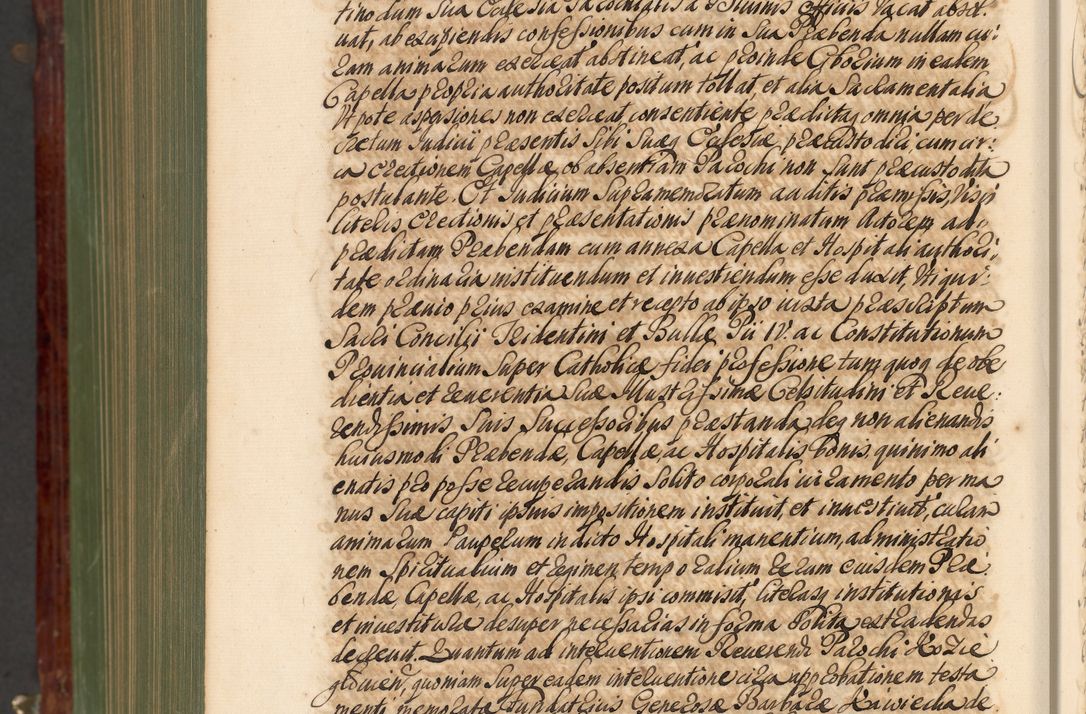 tino dum Sua Ecclesia Parochialis a Divinis Officiis vacat absol:
uat, ab excipiendis confessionibus cum in Sua Præbenda nullam cu:
ram animarum exerceat abstineat, ac proinde Cyborium in eadem
Capella propria authoritate positum tollat, et alia Sacramentalia
Utpote aspersiones non exerceat, consentiente, prædictaq omnia per de
cretum Iudicii præsentis Sibi Suæq Ecclesiæ præcustodiri cum cir:
ca erectionem Capellæ ob absentiam Parochi non Sunt præcustodita
postulante. Et Iudicium Supramemoratum auditis præmissis, visis
literis, erectionis et præsentationis prænominatum Actorem ad
prædictam Præbendam cum annexa Capella et Hospitali authori,
tate ordinaria instituendum et investiendum esse duxit, Utiqui:
dem prævio prius examine et recepto ab ipso iuxta præscriptum
Sacri Concilii Tridentini et Bullæ Pii IV. ac Constitutionum
Provincialium Super Catholicæ fidei professione tum quoq de obe
dientia et reverentia Suæ Illustrissimæ Celsitudini et Reve:
rendissimis Suis Successoribus præstanda, deq non alienandis
huiusmodi Præbendæ, Capellæ ac Hospitalis bonis, quinimo ali
enatis pro posse recuperandis Solito corporali iuramento per ma
nus Suæ capiti ipsius impositionem instituit, et investivit, curam
animarum Pauperum in dicto Hospitali manentium, administratio
nem Spiritualium et regimen temporalium rerum eiusdem Præ
bendæ, Capellæ, ac Hospitalis ipsi commisit, literasq institutionis
et investitura desuper necessarias in forma Solita extradendas
decrevit. Quantum ad interventionem Reverendi Parochi
quoniam Super eadem interventione circa approbationem testa
menti memorata fundatricis Generosæ Barbaræ de